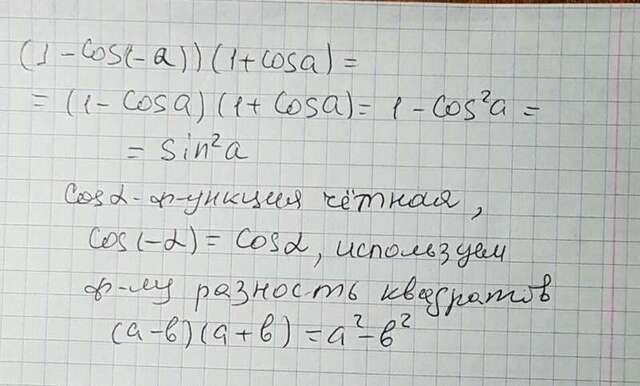 (1-cos(-a))(1+cosa)=
=(1-cosa)(1+cosa)=1-cos²a=
=sin²a
cosα-ф-ункция чётная,
cos(-α)=cosα, используем
ф-лу разность квадратов
(a-в)(a+в)=a²-в²